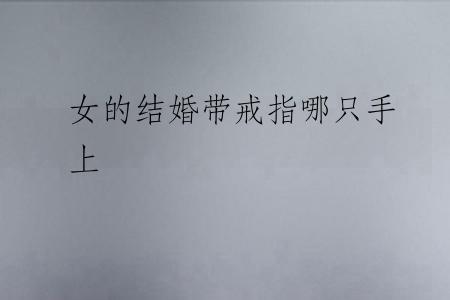 女的结婚带戒指哪只手
上